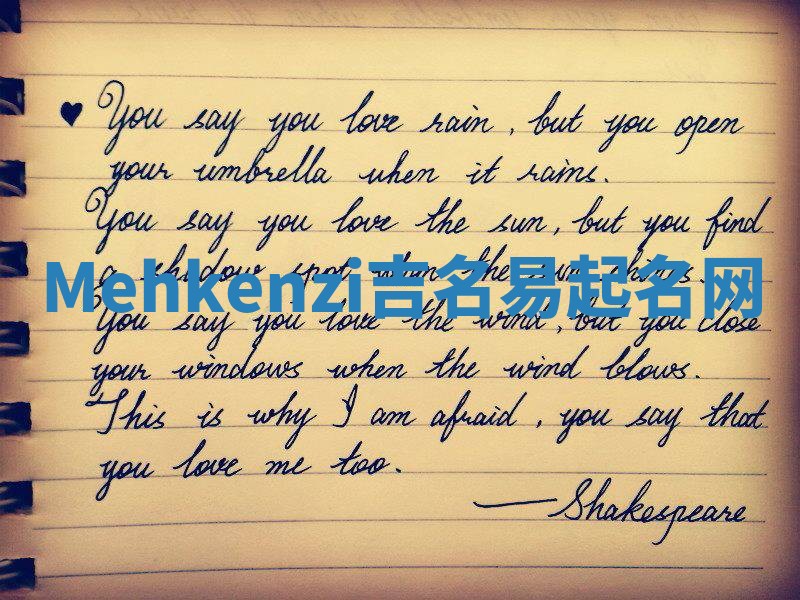 ♥ You say you love rain, but you open
your umbrella when it rains.
You say you love the sun, but you find
a shadow spot when the sun shines.
Mehkenzi吉名易起名网
You say you love the wind, but you close
your windows when the wind blows.
This is why I am afraid, you say that
you love me too.
— Shakespeare